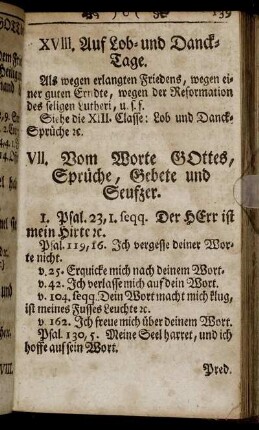 ) o ( 139
XVIII. Auf Lob- und Danck-
Tage.
Als wegen erlangten Friedens, wegen ei-
ner guten Erndte, wegen der Reformation
des seligen Lutheri, u. s. f.
Siehe die XIII. Classe: Lob und Danck-
Sprüche ꝛc.
VII. Vom Worte GOttes,
Sprüche, Gebete und
Seufzer.
1. Psal. 23, 1. seqq. Der HErr ist
mein Hirte ꝛc.
Psal. 119, 16. Ich vergesse deiner Wor-
te nicht.
v. 25. Erquicke mich nach deinem Wort.
v. 42. Ich verlasse mich auf dein Wort.
v. 104. seqq. Dein Wort macht mich klug,
ist meines Fusses Leuchte ꝛc.
v. 162. Ich freue mich über deinem Wort.
Psal. 130, 5. Meine Seel harret, und ich
hoffe auf sein Wort.
Pred.